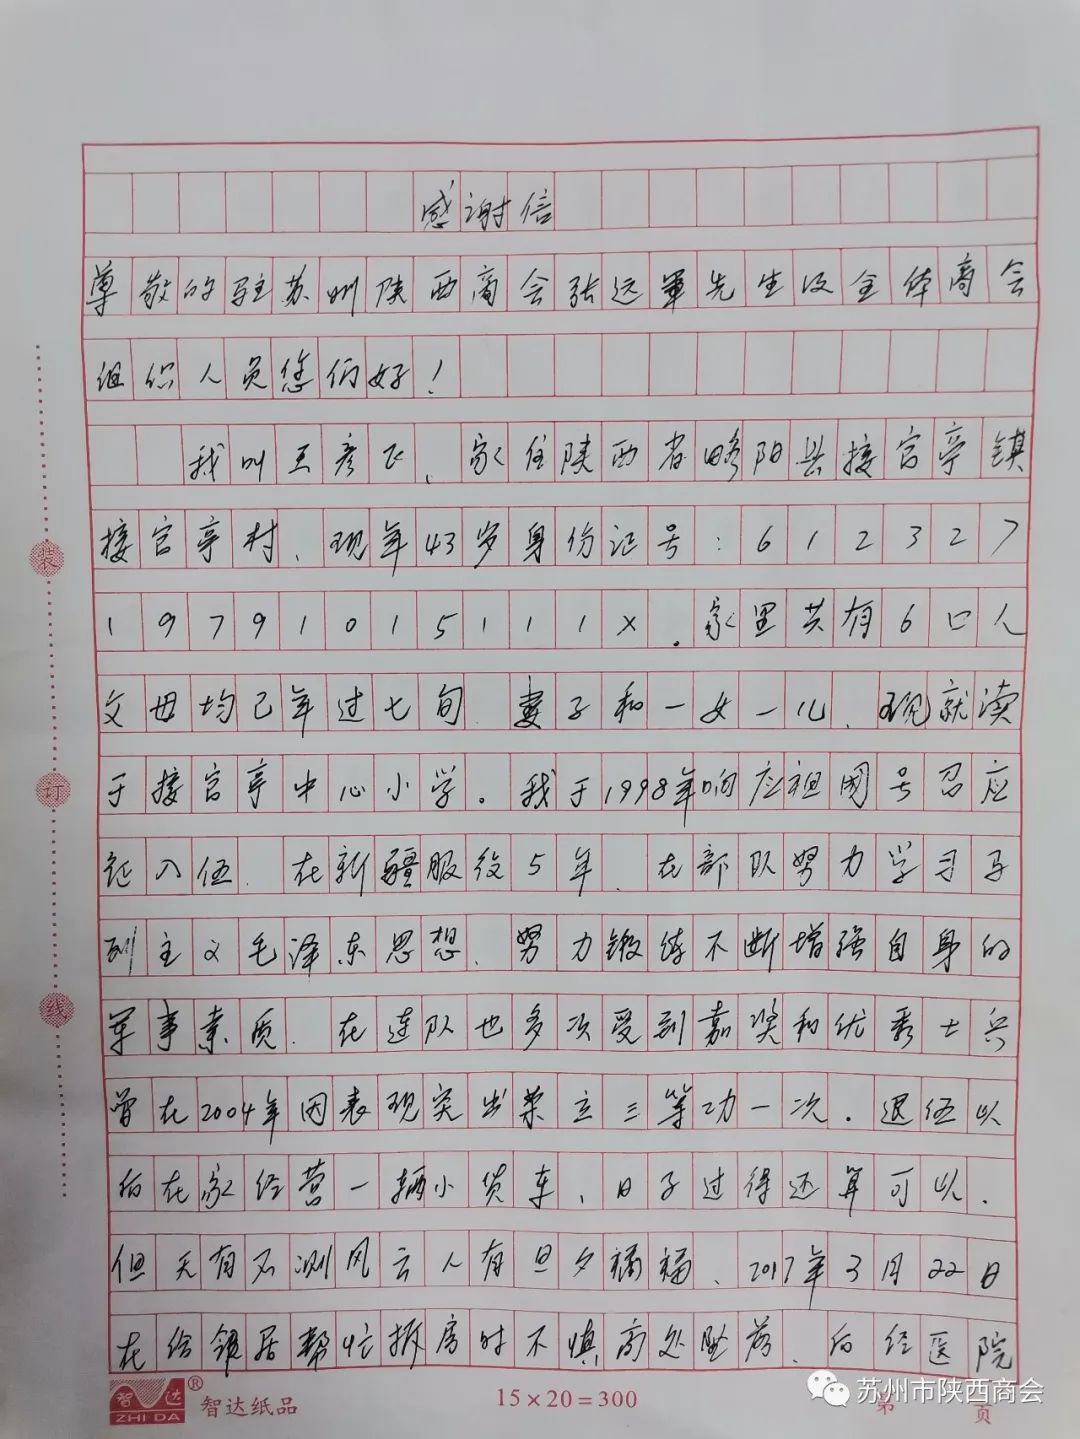 感谢信
尊敬的驻苏州陕西商会张远军先生及全体商会
组织人员您们好！
我叫王彦飞、家住陕西省略阳县接官亭镇
接官亭村、现年43岁身份证号：612327
19791015111X.家里共有6口人
父母均已年过七旬、妻子和一女一儿、现就读
于接官亭中心小学。我于1998年响应祖国号召应
征入伍、在新疆服役5年、在部队努力学习马
列主义毛泽东思想、努力锻练不断增强自身的
军事素质、在连队也多次受到嘉奖和优秀士兵
曾在2004年因表现突出荣立三等功一次.退伍以
后在家经营一辆小货车、日子过得还算可以.
但天有不测风云人有旦夕祸福、2017年3月22日
在给邻居帮忙拆房时不慎高处坠落、后经医院
装
订
线
智达
ZHI DA
®
智达纸品
15×20=300
第 页
苏州市陕西商会